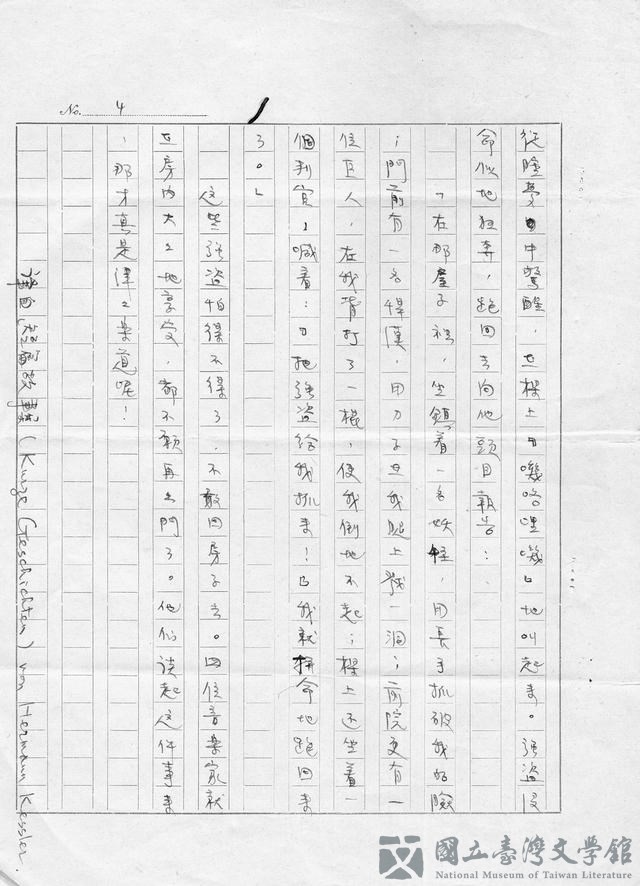 No. 4
從睡夢中驚醒,在樑上『嘰咯哩嘰』地叫起来。強盜沒
命似地狂奔,跑回去向他頭目報告:
「在那屋子裡,坐鎮着一名妖怪,用長手抓破我的臉
;門前有一名悍漢,用刀子在我腿上戮一洞;前院更有一
位巨人,在我背打了一棍,使我倒地不起;樑上还坐着一
個判官,喊着:『把強盜給我抓来!』我就拼命地跑回来
了。」
这些強盜怕得不得了,不敢回房子去。四位音楽家就
在房内大々地享受,都不願再出門了。他们談起这件事来
,那才真是津々楽道呢!
譯自,短篇故事(Kurze Geschichten) von Hermann Kessler.
國立臺灣文學館
National Museum of Taiwan Literature